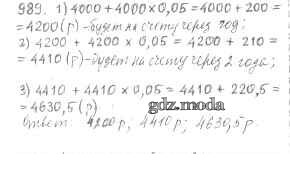 989. 1) 4000 + 4000 × 0,05 = 4000 + 200 =
= 4200 (р) - будет на счету через год;
2) 4200 + 4200 × 0,05 = 4200 + 210 =
= 4410 (р) - будет на счету через 2 года;
3) 4410 + 4410 × 0,05 = 4410 + 220,5 =
= 4630,5 (р)
gdz.moda
Ответ: 4200 р; 4410 р; 4630,5 р.